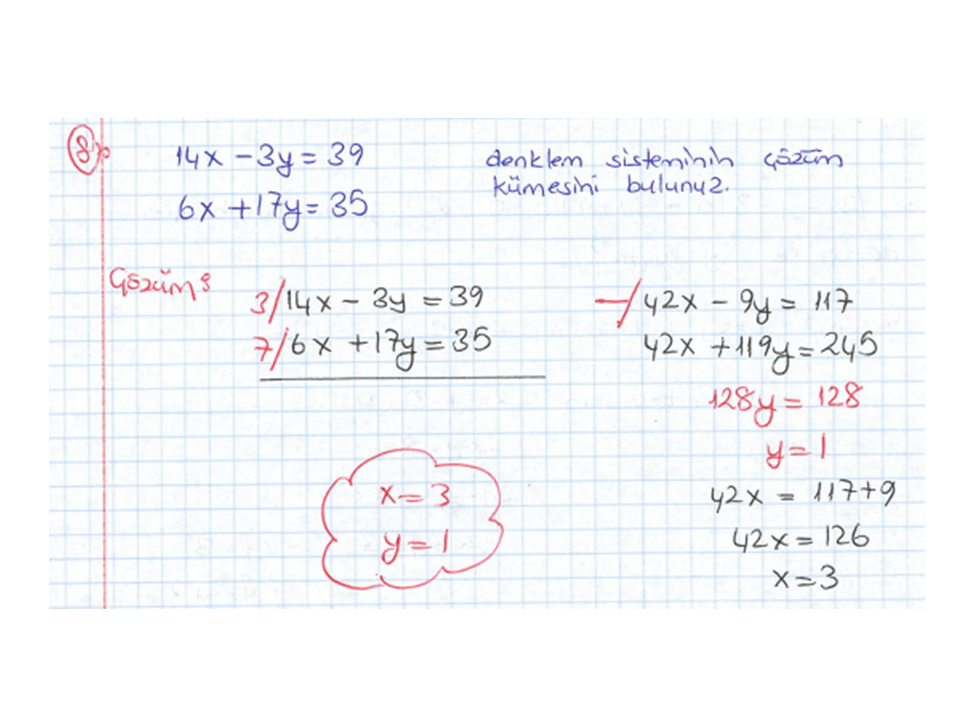 8)
14x - 3y = 39
6x + 17y = 35
denklem sisteminin çözüm
kümesini bulunuz.
Çözüm:
3/14x - 3y = 39
7/6x + 17y = 35
-/42x - 9y = 117
42x + 119y = 245
128y = 128
y = 1
42x = 117+9
42x = 126
x = 3
x = 3
y = 1